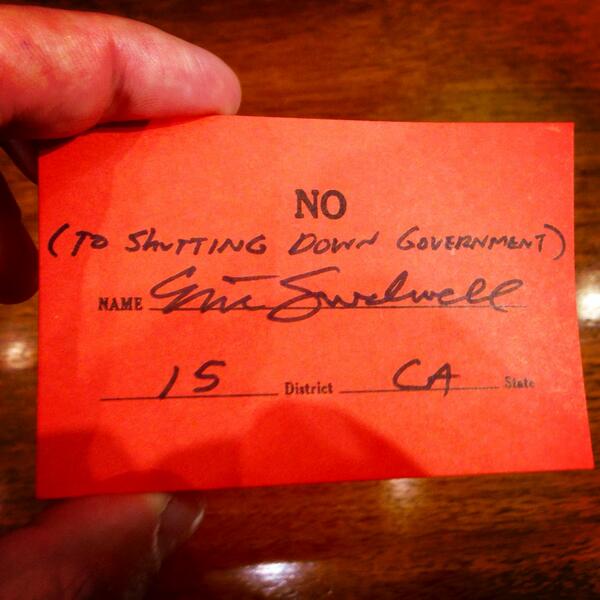 NO
(TO SHUTTING DOWN GOVERNMENT)
NAME Eric Swalwell
15 District CA State